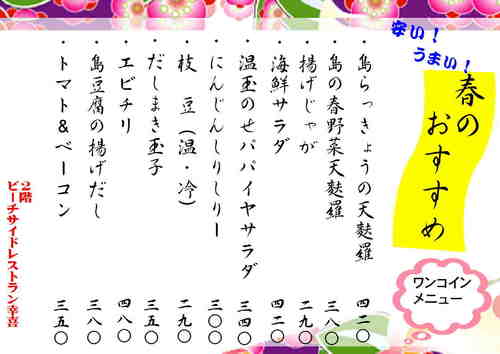 安い！
うまい！
春の
おすすめ
ワンコイン
メニュー
・島らっきょうの天麩羅 四二〇
・島の春野菜天麩羅 三八〇
・揚げじゃが 二九〇
・海鮮サラダ 四二〇
・温玉のせパパイヤサラダ 三四〇
・にんじんしりしりー 三〇〇
・枝 豆（温・冷） 二九〇
・だしまき玉子 三五〇
・エビチリ 四八〇
・島豆腐の揚げだし 三八〇
・トマト＆ベーコン 三五〇
2階
ビーチサイドレストラン幸喜